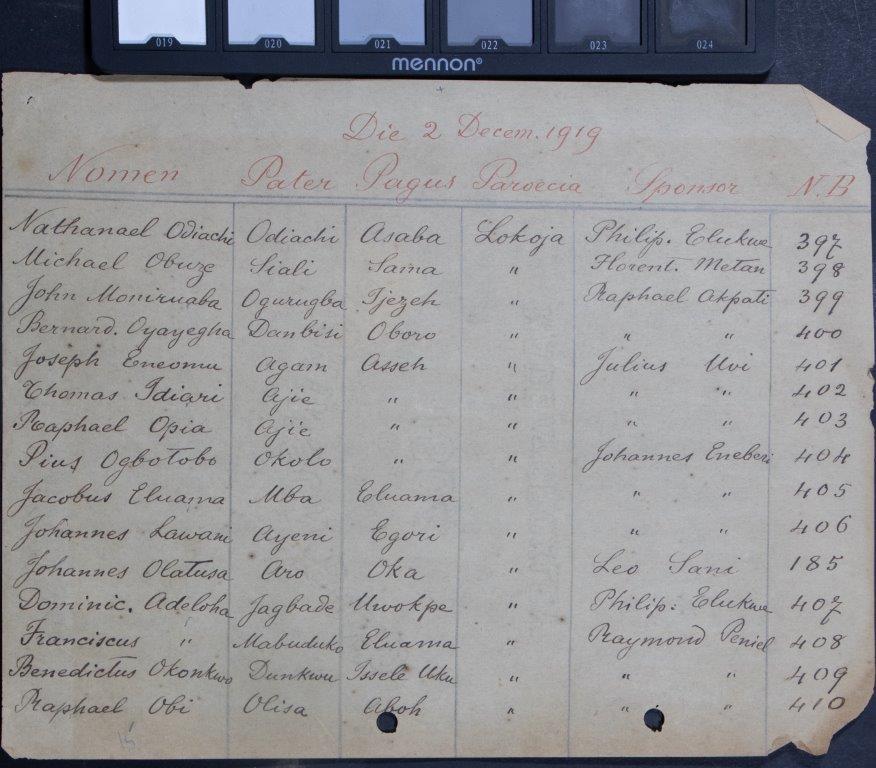 019 020 021 022 023 024
mennon®
Die 2 Decem. 1919
Nomen Pater Pagus Paroecia Sponsor N.B
Nathanael Odiachi Odiachi Asaba Lokoja Philip. Elukwe 397
Michael Obuze Siali Sama " Florent. Metan 398
John Moniruaba Ogurugba Ijezeh " Raphael Akpati 399
Bernard. Oyayegha Danbisi Oboro " " " 400
Joseph Eneomu Agam Asseh " Julius Uvi 401
Thomas Idiari Ajie " " " " 402
Raphael Opia Ajie " " " " 403
Pius Ogbotobo Okolo " " Johannes Eneberi 404
Jacobus Eluama Mba Eluama " " " 405
Johannes Lawani Ayeni Egori " " " 406
Johannes Olatusa Aro Oka " Leo Sani 185
Dominic. Adeloha Jagbade Uwokpe " Philip: Elukwe 407
Franciscus " Mabuduko Eluama " Raymond Peniel 408
Benedictus Okonkwo Dunkwu Issele Uku " " " 409
Raphael Obi Olisa Aboh " " " 410
15